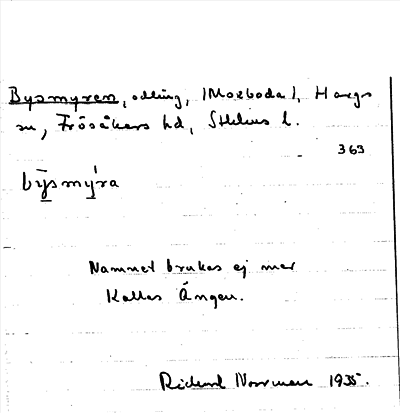 Bysmyren, odling, (Morboda), Hargs
sn, Frösåkers hd, Sthlms l.
363
bysmýra
Namnet brukas ej mer
Kallas Ängen.
Rickard Norrman 1935.